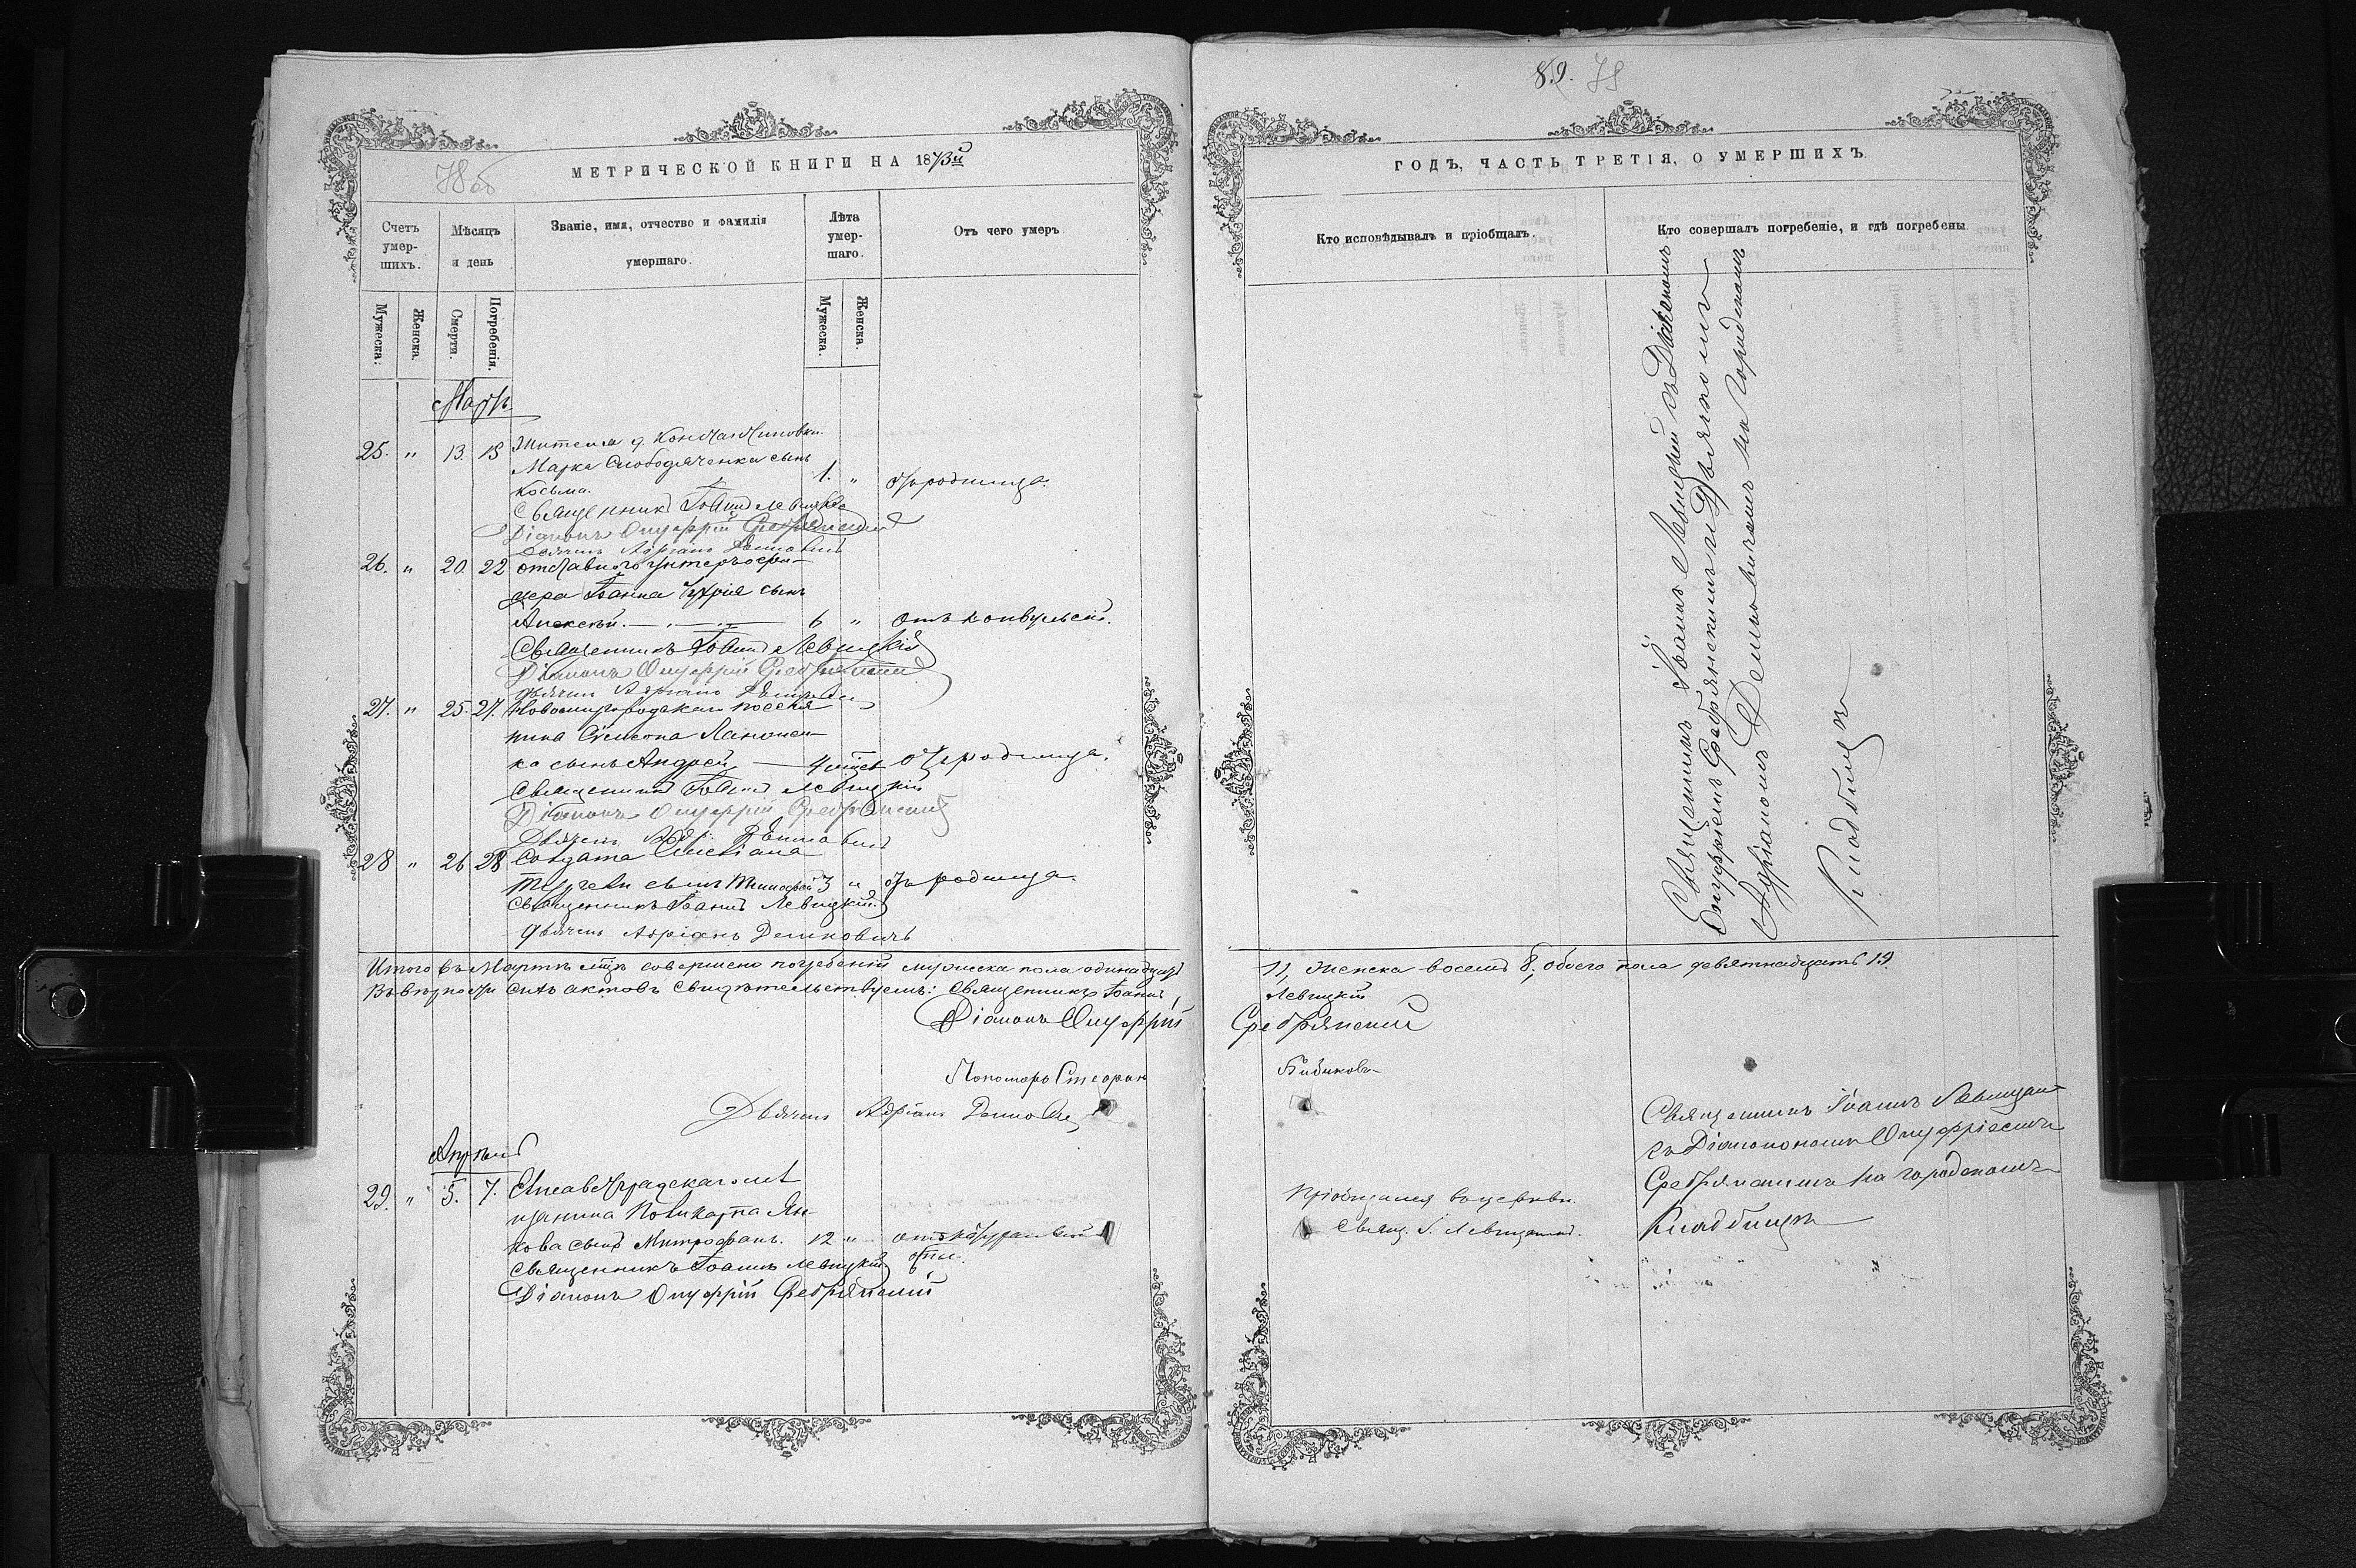 78 об
МЕТРИЧЕСКОЙ КНИГИ НА 1873й
Счетъ умер-шихъ.
Мѣсяцъ и день
Званіе, имя, отчество и фамилія умершаго.
Лѣта умер-шаго.
Отъ чего умеръ
Мужеска:
Женска.
Смерти.
Погребенія.
Мужеска.
Женска.
Мартъ
25. " 13. 15 Жителя д. Константиновки
Марка Слободяченка сынъ
Косьма. 1. " Отъ родимца.
Священникъ Іоаннъ Левицкій
Діаконъ Онуфрій Среб
Дьячекъ Адріанъ Демковичъ
26. " 20. 22 отставнаго унтеръ офи-
цера Іоанна сынъ
Алексѣй. 6 " Отъ конвульсій.
Священникъ Іоаннъ Левицкій
Діаконъ Онуфрій
Дьячекъ Адріанъ
27. " 25. 27. Новомиргородскаго поселя
нина Симеона
ка сынъ Андрей 4 мѣсц. Отъ родимца.
Священникъ Іоаннъ Левицкій
Діаконъ Онуфрій
Дьячекъ Демкович
28 " 26 28 Солдата
сынъ Тимофей 3 " Отъ родимца.
Священникъ Іоаннъ Левицкій
Дьячекъ Адріанъ Демковичъ
Итого въ Мартѣ мцѣ совершено погребеній мужеска пола одинадцать
Въ вѣрности сихъ актовъ свидѣтельствуемъ: Священникъ Іоаннъ
Діаконъ Онуфрій
Пономарь Стефан
Дьячекъ Адріанъ
Апрѣль
29. " 5. 7. Елисаветградскаго мѣ
щанина Поликарпа Ян-
кова сынъ Митрофанъ. 12 " отъ натуральной
оспы.
Священникъ Іоаннъ Левицкій
Діаконъ Онуфрій Сребрянскій
89. 79
ГОДЪ, ЧАСТЬ ТРЕТІЯ, О УМЕРШИХЪ
Кто исповѣдывалъ и пріобщалъ.
Кто совершалъ погребеніе, и гдѣ погребены
Священникъ Іоаннъ Левицкій съ Діакономъ
Онуфріемъ Сребрянскимъ и Дьячкомъ
Адріаномъ Демковичемъ на Городскомъ
Кладбищѣ
11, женска восемь 8, обоего пола девятнадцать 19.
Левицкій
Сребрянскій
Бибиковъ
Пріобщался въ церкви
Свящ. І. Левицкимъ.
Священникъ Іоаннъ Левицкій
съ Діакономъ Онуфріемъ
Сребрянскимъ на городскомъ
Кладбищѣ